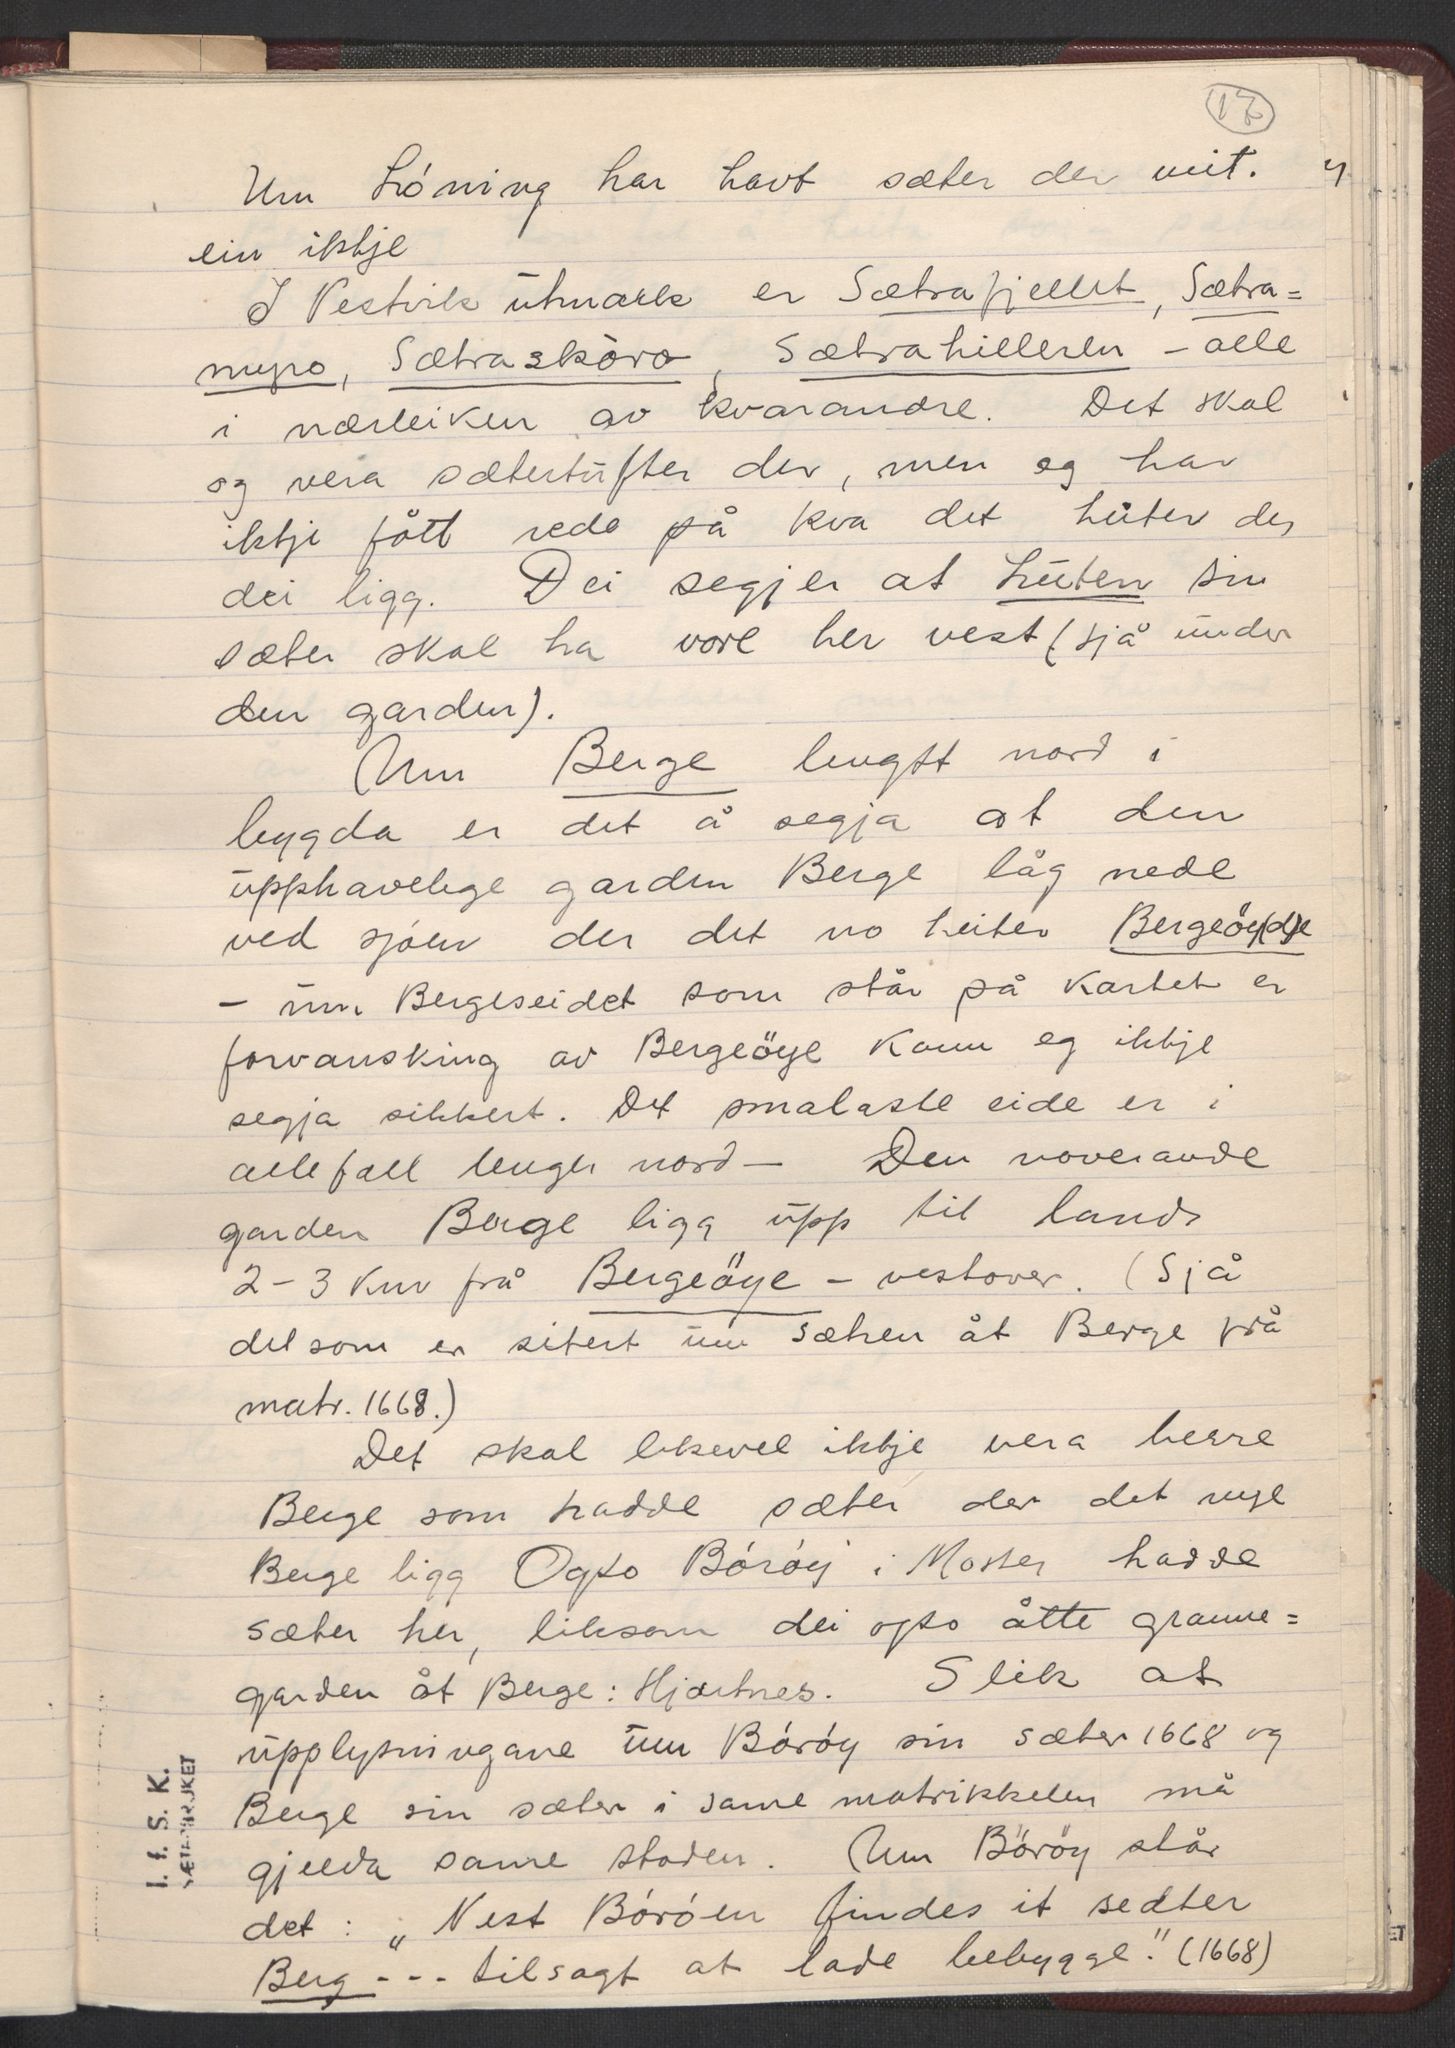 17
Um Lóning har havt sæter der veit.
ein ikkje
I Vestvik utmark er Sætrafjellet, Sætra=
nupo, Sætraskòro, Sætrahilleren - alle
i nærleiken av kvarandre. Det skal
og vera sætertufter der, men eg har
ikkje fått rede på kva det heiter der
dei ligg. Dei segjer at Liten sin
sæter skal ha vore her vest (sjå under
den garden).
Um Berge lengst nord i
bygda er det å segja at den
upphavelege garden Berge låg nede
ved sjóen der det no heiter Bergeöy(d)e
- um Bergeseidet som står på kartet er
forvansking av Bergeöye kann eg ikkje
segja sikkert. Det smalaste eide er i
allefall lenger nord - Den noverande
garden Berge ligg upp til lands
2-3 km frå Bergeöye - vestover. (Sjå
det som er sitert um sætren åt Berge frå
matr. 1668.)
Det skal likevel ikkje vera berre
Berge som hadde sæter der det nye
Berge ligg Ogso Bóróy i Moster hadde
sæter her, liksom dei ogso åtte granne=
garden åt Berge: Hjartnes. Slik at
upplysningane um Bóróy sin sæter 1668 og
Berge sin sæter i same matrikkelen må
gjelda same staden. Um Böröy står
det: „Nest Bóróen findes it sedter
Berg --- tilsagt at lade bebygge." (1668)
I. f. S. K.